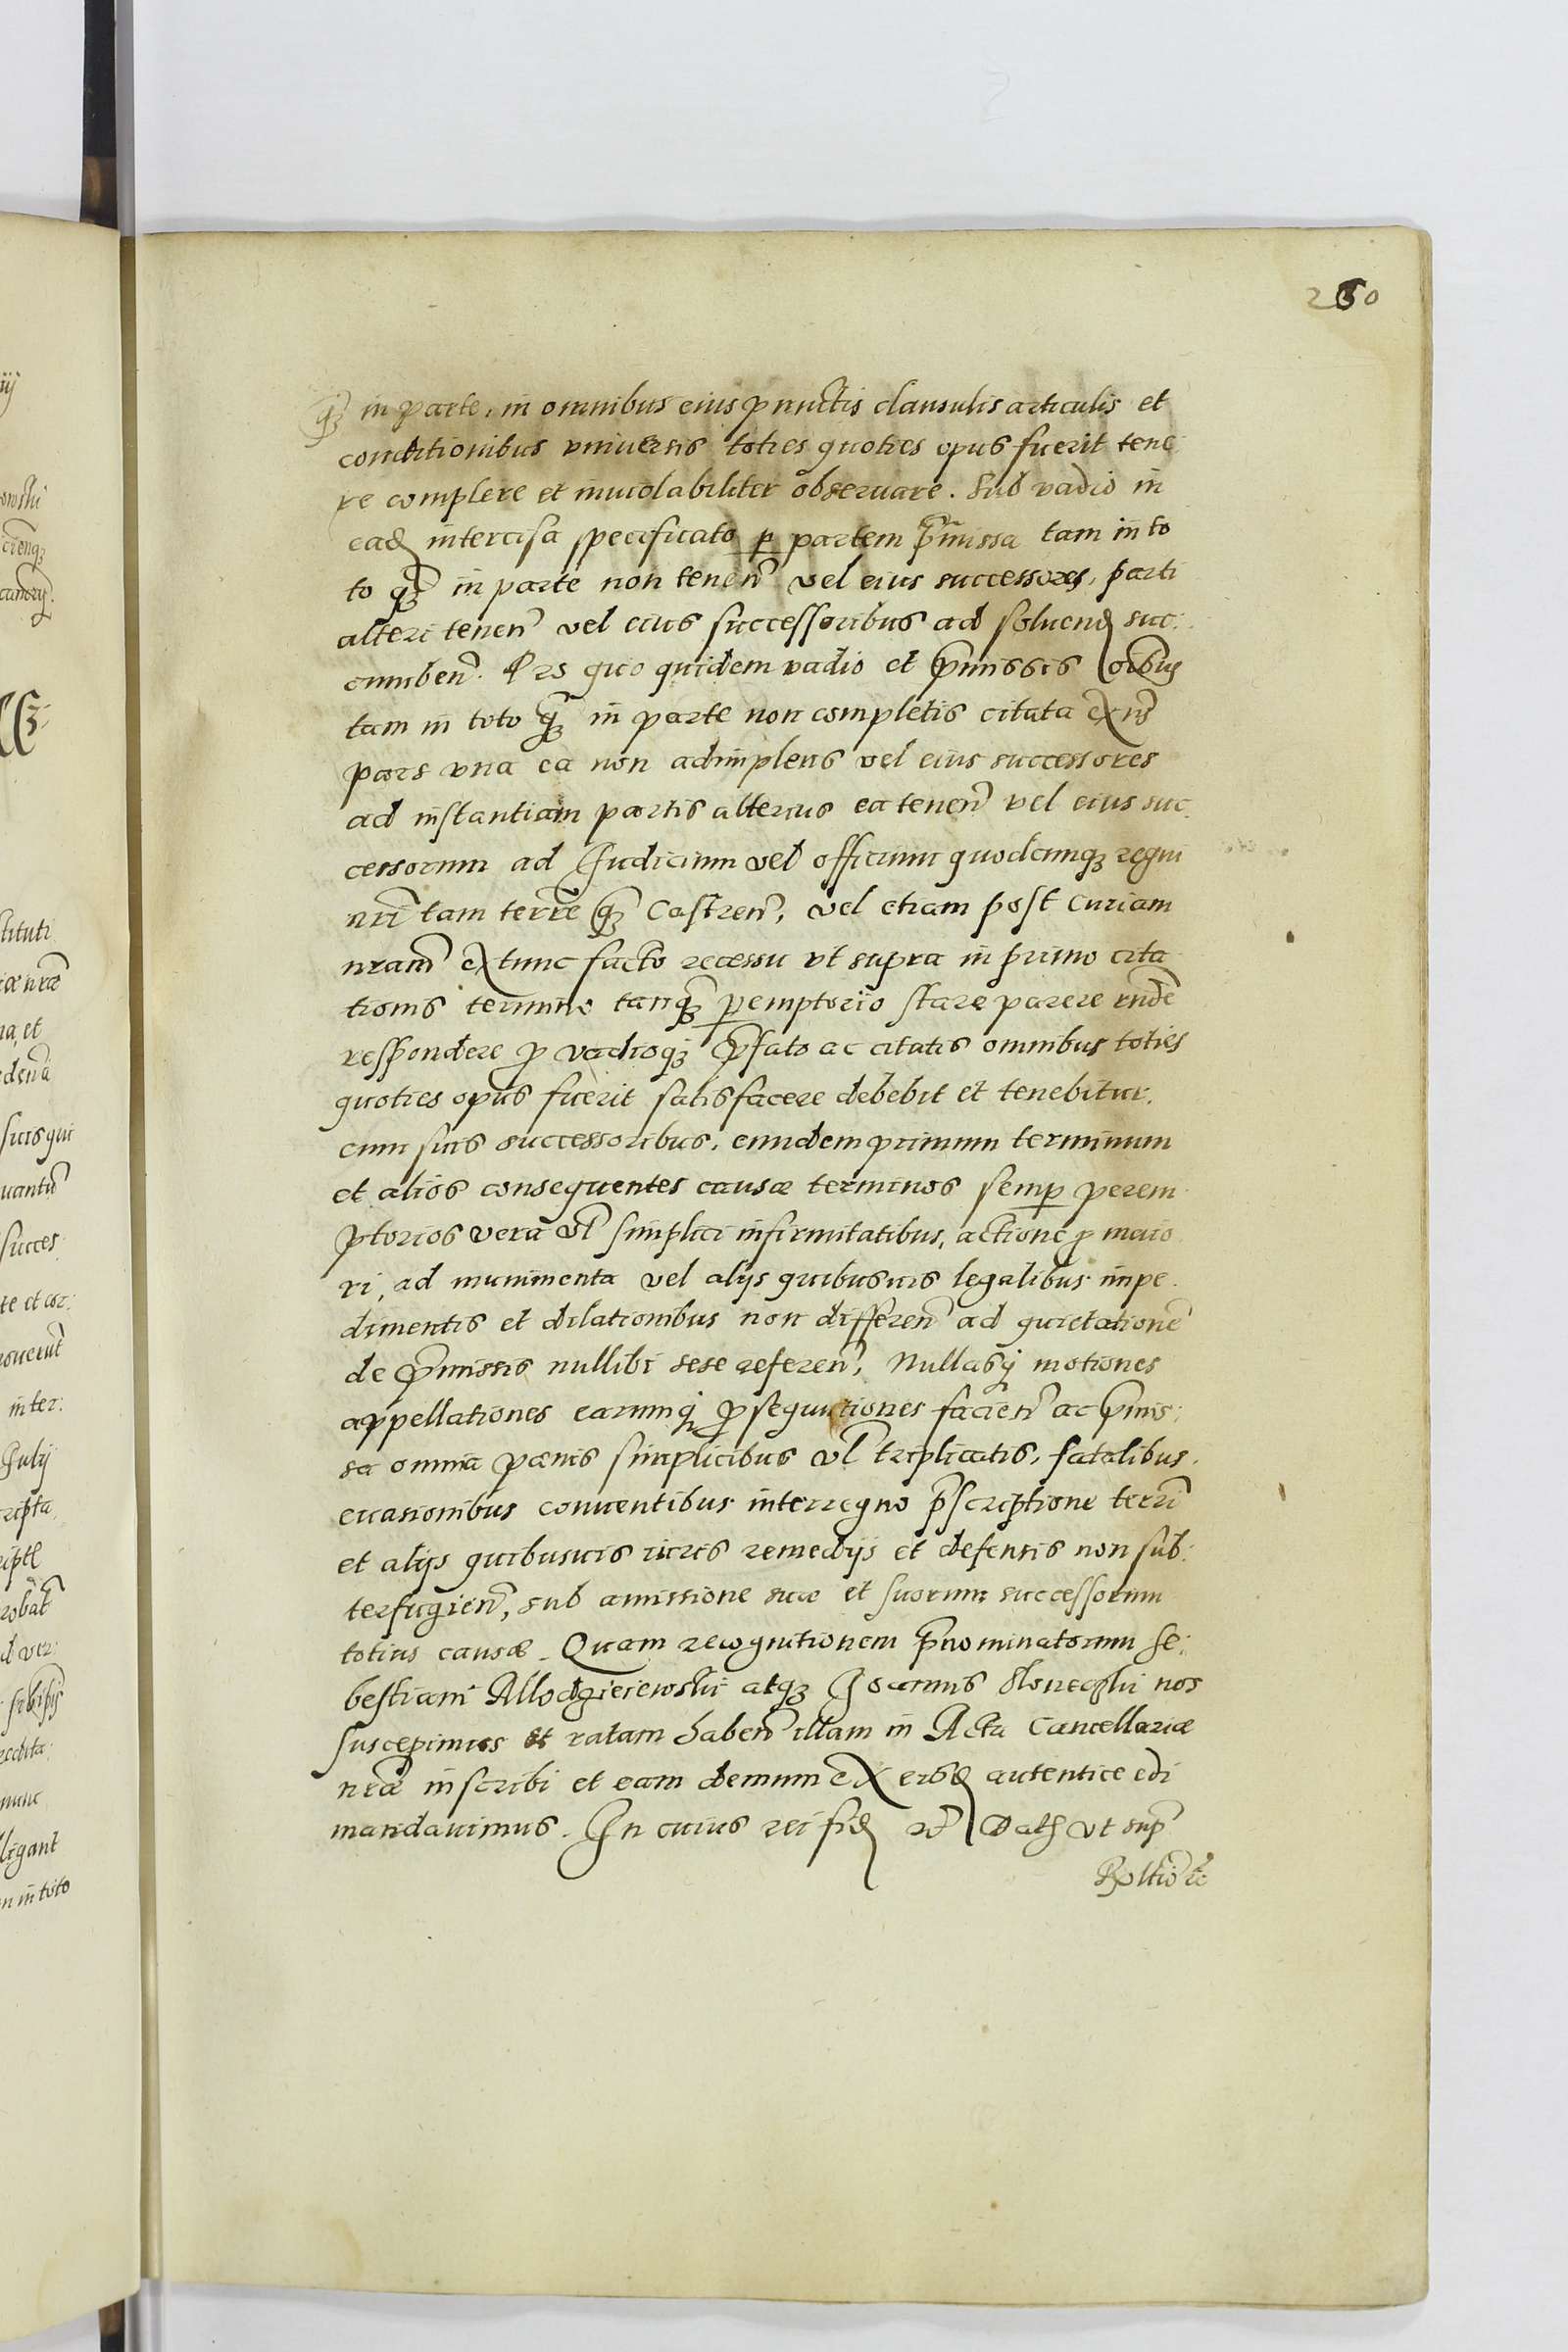 260
q̃ in parte, in omnibus eius punctis clausulis articulis et
conditionibus vniuersis toties quoties opus fuerit tene
re complere et inuiolabiliter obseruare. Sub vadio in
ead intercisa specificato p partem p̃missa tam in to
to q̃ in parte non tenen̄ vel eius successores, parti
alteri tenen̄ vel eius successoribus ad soluend suc:
cumben̄. Pro quo quidem vadio et p̃missis oĩbus
tam in toto q̃ in parte non completis citata ex nr̄s
pars vna ea non adimplens vel eius successores
ad instantiam partis alterius ea tenen̄ vel eius suc
cessorum ad Judicium vel officium quodcunqꝫ regni
nr̄i tam terr̄e q̃ Castren̄, vel etiam post Curiam
nr̄am extunc facto recessu vt supra in primo cita
tionis termino tanq̃ peremptorio stare parere
respondere p vadioqꝫ p̃fato ac citatis omnibus toties
quoties opus fuerit satisfacere debebit et tenebitur.
cum suis successoribus. eundem primum terminum
et alios consequentes causæ terminos semp perem
ptorios vera vl̃ simplici infirmitatibus, actione p maio
ri, ad munimenta vel alijs quibusuis legalibus impe
dimentis et dilationibus non differen̄ ad quietationē
de p̃missis nullibi sese referen̄, Nullasqꝫ motiones
appellationes earumqꝫ prosequutiones facien̄ ac p̃mis:
sa omnia pænis simplicibus vl̃ triplicatis, fatalibus.
euasionibus conuentibus interregno p̃scriptione terr̄
et alijs quibusuis iuris remedijs et defensis non sub:
terfugien̄, sub amissione suæ et suorum successorum
totius causæ. Quam recognitionem p̃nominatorum Se:
bestiani Allodgieiewski atqꝫ Joannis nos
suscepimus et ratam haben̄ illam in Acta Cancellariæ
nr̄æ inscribi et eam demum ex eisd autentice edi
mandauimus. In cuius rei fid Dat vt sup̄